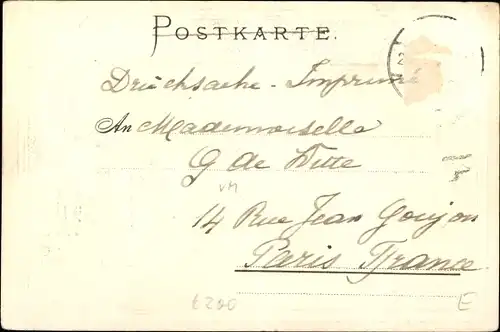 POSTKARTE.
Drucksache - Imprimé
An Mademoiselle
G de Witte
VM
14 Rue Jean Goujon
Paris France
E